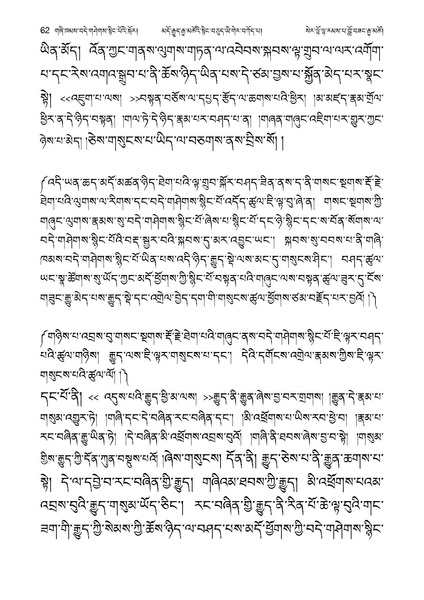 62 གཞི་ཁམས་བདེ་གཤེགས་སྙིང་པོའི་སྐོར། མདོ་རྒྱུད་རྒྱ་མཚོའི་སྙིང་བཅུད་ཡི་གེར་བཀོད་པ། སེར་ལྷོ་ལྷ་རམས་པ་བློ་བཟང་རྒྱ་མཚོ།
ཡིན་མོད། འོན་ཀྱང་གནས་ལུགས་གཏན་ལ་འབེབས་སྐབས་ལྟ་གྲུབ་ལ་ལར་འགོག་
པ་དང་རེས་འགའ་སྒྲུབ་པ་ནི་ཆོས་ཉིད་ཡིན་པས་དེ་ཙམ་བྱས་པ་སྐྱོན་མེད་པར་སྣང་
སྟེ། <<འཇུག་པ་ལས། >>བསྟན་བཅོས་ལ་དཔྱད་རྩོད་ལ་ཆགས་པའི་ཕྱིར། །མ་མཛད་རྣམ་གྲོལ་
ཕྱིར་ན་དེ་ཉིད་བསྟན། །གལ་ཏེ་དེ་ཉིད་རྣམ་པར་བཤད་པ་ན། །གཞན་གཞུང་འཇིག་པར་གྱུར་ཀྱང་
ཉེས་པ་མེད། །ཅེས་གསུངས་པ་ཡིད་ལ་བཅགས་ནས་བྲིས་སོ། །
༼འདི་ཡན་ཆད་མདོ་མཚན་ཉིད་ཐེག་པའི་ལྟ་གྲུབ་སྐོར་བཤད་ཟིན་ནས་ད་ནི་གསང་སྔགས་རྡོ་རྗེ་
ཐེག་པའི་ལུགས་ལ་རིགས་དང་བདེ་གཤེགས་སྙིང་པོ་འདོད་ཚུལ་ཇི་ལྟ་བུ་ཞེ་ན། གསང་སྔགས་ཀྱི་
གཞུང་ལུགས་རྣམས་སུ་བདེ་གཤེགས་སྙིང་པོ་ཞེས་པ་སྙིང་པོ་དང་ཧེ་སྙིང་དང་ས་བོན་སོགས་ལ་
བདེ་གཤེགས་སྙིང་པོའི་བརྡ་སྦྱར་བའི་སྐབས་དུ་མར་འབྱུང་ཡང་། སྐབས་སུ་བབས་པ་ནི་གཞི་
ཁམས་བདེ་གཤེགས་སྙིང་པོ་ཡིན་པས་འདི་ཉིད་རྒྱུད་སྡེ་ལས་མང་དུ་གསུངས་ཤིང་། བཤད་ཚུལ་
ཡང་སྣ་ཚོགས་སུ་ཡོད་ཀྱང་མདོ་ཕྱོགས་ཀྱི་སྙིང་པོ་བསྟན་པའི་གཞུང་ལས་བསྟན་ཚུལ་ཟུར་དུ་ངོས་
གཟུང་རྒྱུ་མེད་པས་རྒྱུད་སྡེ་དང་འགྲེལ་བྱེད་དག་གི་གསུངས་ཚུལ་ཕྱོགས་ཙམ་བརྗོད་པར་བྱའོ། །༽
༼གཉིས་པ་འབྲས་བུ་གསང་སྔགས་རྡོ་རྗེ་ཐེག་པའི་གཞུང་ནས་བདེ་གཤེགས་སྙིང་པོ་ཇི་ལྟར་བཤད་
པའི་ཚུལ་གཉིས། རྒྱུད་ལས་ཇི་ལྟར་གསུངས་པ་དང་། དེའི་དགོངས་འགྲེལ་རྣམས་ཀྱིས་ཇི་ལྟར་
གསུངས་པའི་ཚུལ་ལོ། །༽
དང་པོ་ནི། << འདུས་པའི་རྒྱུད་ཕྱི་མ་ལས། >>རྒྱུད་ནི་རྒྱུན་ཞེས་བྱ་བར་གྲགས། །རྒྱུན་དེ་རྣམ་པ་
གསུམ་འགྱུར་ཏེ། །གཞི་དང་དེ་བཞིན་རང་བཞིན་དང་། །མི་འཕྲོགས་པ་ཡིས་རབ་ཕྱེ་བ། །རྣམ་པ་
རང་བཞིན་རྒྱུ་ཡིན་ཏེ། །དེ་བཞིན་མི་འཕྲོགས་འབྲས་བུའོ། །གཞི་ནི་ཐབས་ཞེས་བྱ་བ་སྟེ། །གསུམ་
གྱིས་རྒྱུད་ཀྱི་དོན་ཀུན་བསྡུས་པའོ། །ཞེས་གསུངས། དོན་ནི། རྒྱུད་ཅེས་པ་ནི་རྒྱུན་ཆགས་པ་
སྟེ། དེ་ལ་དབྱེ་བ་རང་བཞིན་གྱི་རྒྱུད། གཞིའམ་ཐབས་ཀྱི་རྒྱུད། མི་འཕྲོགས་པའམ་
འབྲས་བུའི་རྒྱུད་གསུམ་ཡོད་ཅིང་། རང་བཞིན་གྱི་རྒྱུད་ནི་རིན་པོ་ཆེ་ལྟ་བུའི་གང་
ཟག་གི་རྒྱུད་ཀྱི་སེམས་ཀྱི་ཆོས་ཉིད་ལ་བཤད་པས་མདོ་ཕྱོགས་ཀྱི་བདེ་གཤེགས་སྙིང་